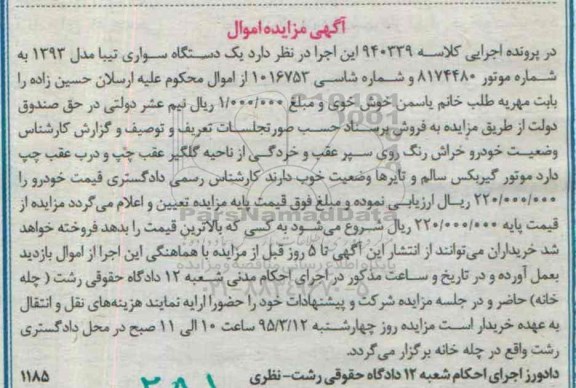 آگهی مزایده اموال
در پرونده اجرایی کلاسه ۹۴۰۳۳۹ این اجرا در نظر دارد یک دستگاه سواری تیبا مدل ۱۳۹۳ به
شماره موتور ۸۱۷۴۴۸۰ و شماره شاسی ۱۰۱۶۷۵۳ از اموال محکوم علیه ارسلان حسین زاده را
بابت مهریه طلب خانم یاسمن خوش خوی و مبلغ ۱/۰۰۰/۰۰۰ ریال نیم عشر دولتی در حق صندوق
دولت از طریق مزایده به فروش برساند حسب صورتجلسات تعریف و توصیف و گزارش کارشناس
وضعیت خودرو خراش رنگ روی سپر عقب و خردگی از ناحیه گلگیر عقب چپ و درب عقب چپ
دارد موتور گیربکس سالم و تایرها وضعیت خوب دارند کارشناس رسمی دادگستری قیمت خودرو را
۲۲۰/۰۰۰/۰۰۰ ریال ارزیابی نموده و مبلغ فوق قیمت پایه مزایده تعیین و اعلام می‌گردد مزایده از
قیمت پایه ۲۲۰/۰۰۰/۰۰۰ ریال شروع می‌شود به کسی که بالاترین قیمت را بدهد فروخته خواهد
شد خریداران می‌توانند از انتشار این آگهی تا ۵ روز قبل از مزایده با هماهنگی این اجرا از اموال بازدید
بعمل آورده و در تاریخ و ساعت مذکور در اجرای احکام مدنی شعبه ۱۲ دادگاه حقوقی رشت ( چله
خانه) حاضر و در جلسه مزایده شرکت و پیشنهادات خود را حضورا ارایه نمایند هزینه‌های نقل و انتقال
به عهده خریدار است مزایده روز چهارشنبه ۹۵/۳/۱۲ ساعت ۱۰ الی ۱۱ صبح در محل دادگستری
رشت واقع در چله خانه برگزار می‌گردد.
دادورز اجرای احکام شعبه ۱۲ دادگاه حقوقی رشت- نظری
۱۱۸۵
ParsNamadData